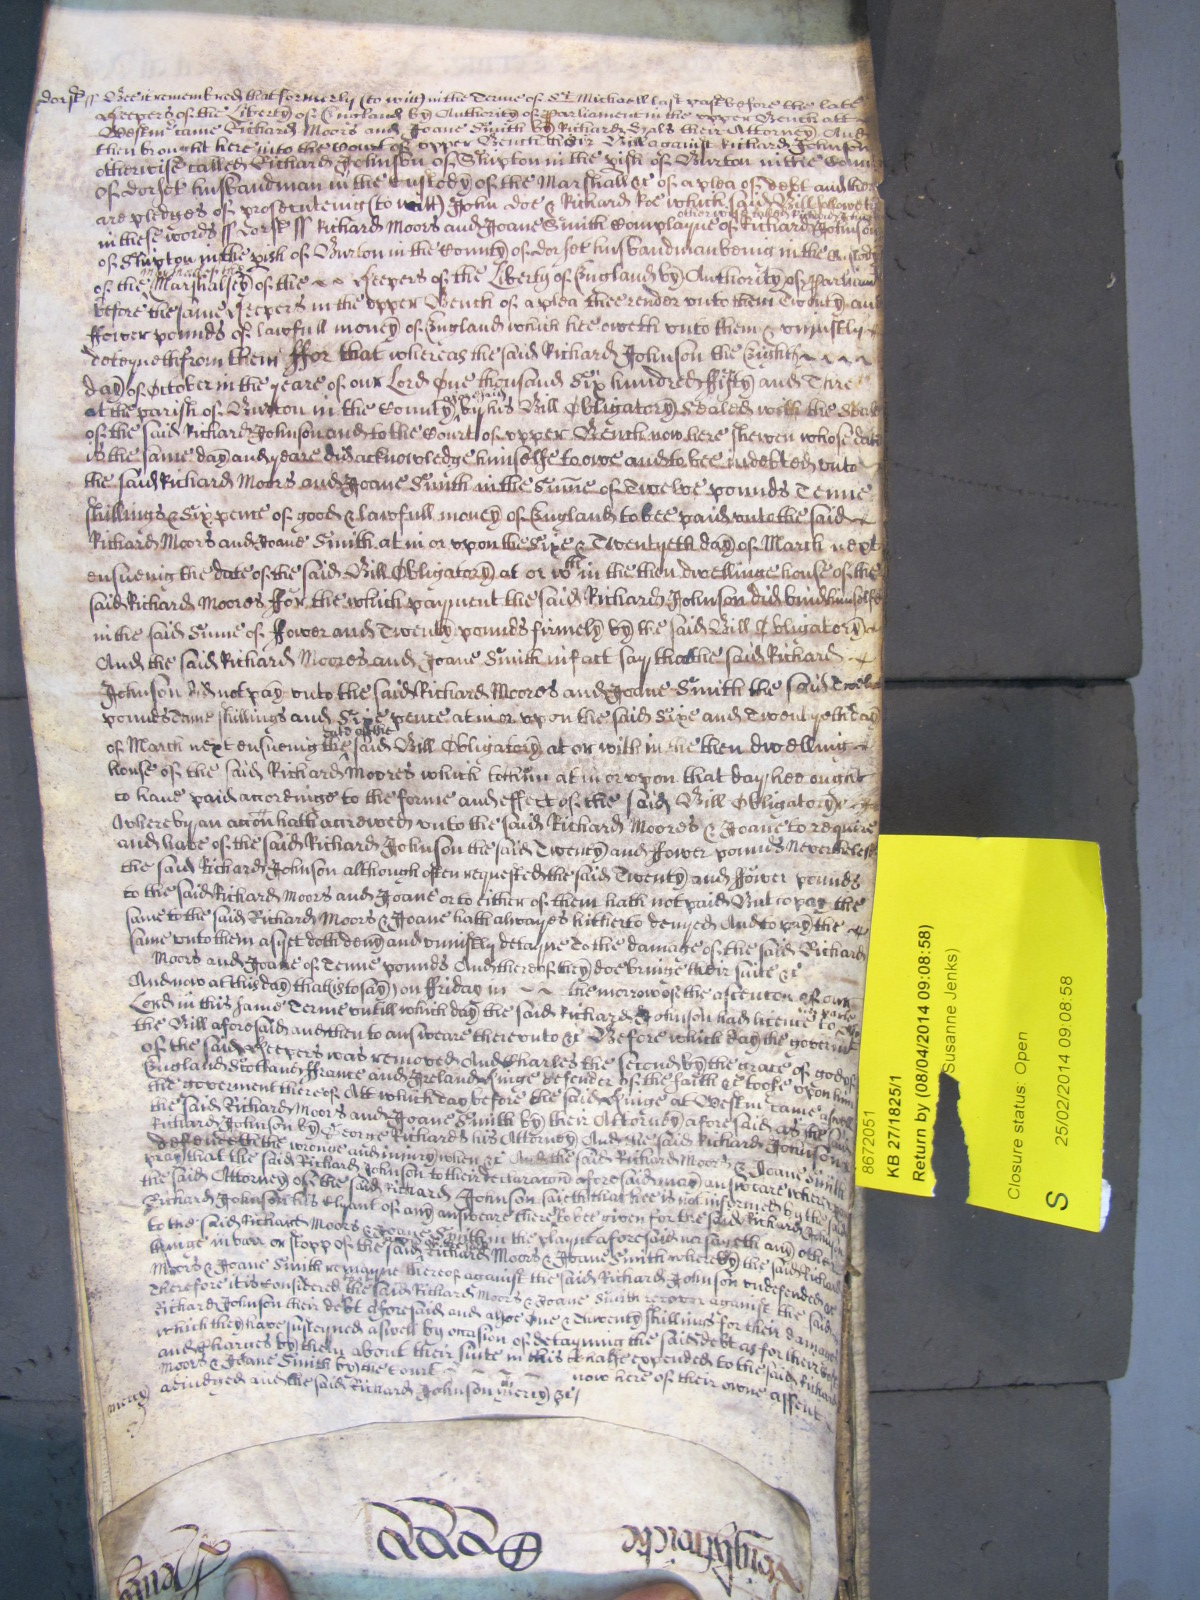 Dorsꝭ ss Bee it remembred that formerly (to witt) in the Terme of St Michaell last past before the late
Keepers of the Liberty of England by Authority of Parliament in the upper Bench att
Westm̃ came Richard Moors and Joane Smith by Richard their Attorney And
then brought here into the Court of upper Bench their Bill against Richard Johnson
otherwise called Richard Johnson of Shipton in the pish of Burton in the Countie
of Dorset husbandman in the Custody of the Marshall &c of a plea of debt and there
are pledges of prosecuteing (to witt) John Doe & Richard Roe which said Bill followeth
in these words ss Dorsꝭ ss Richard Moors and Joane Smith Complayne of Richard Johnson
otherwise called Richard Johnson
of Shipton in the pish of Burton in the County of Dorset husbandman being in the Custody
of the Marshalsey of the Keepers of the Liberty of England by Authority of Parliament
before the same Keepers in the upper Bench of a plea that hee render unto them Twenty and
ffower pounds of lawfull money of England which hee oweth unto them & uniustly
deteyneth from them ffor that whereas the said Richard Johnson the Eighth
day of October in the yeare of our Lord One thousand Six hundred ffifty and
at the parish of Burton in the County by his Bill Obligatory Sealed with the Seale
of the said Richard Johnson and to the Court of upper Bench now here shewen whose date
is the same day and yeare did acknowledge himselfe to owe and to bee indebted unto
the said Richard Moors and Joane Smith in the Sum̃e of Twelve pounds Tenne
shillings & Six pence of good & lawfull money of England to bee paid unto the said
Richard Moors and Joane Smith at in or upon the Sixe & Twentyeth day of March next
ensueing the date of the said Bill Obligatory at or wth in the then dwellinge house of the
said Richard Moores ffor the which payment the said Richard Johnson did bind himselfe
in the said Sum̃e of ffower and Twenty pounds firmely by the said Bill Obligatory
And the said Richard Moores and Joane Smith in fact say that the said Richard
Johnson did not pay unto the said Richard Moores and Joane Smith the said Twelve
pounds Tenne shillings and Sixe pence at in or upon the said Sixe and Twentyeth day
date of the
of March next ensueing the said Bill Obligatory at or with in the then dwelling
house of the said Richard Moores which to him at in or upon that day hee ought
to have paid accordinge to the forme and effect of the said Bill Obligatory
whereby an acc̃on hath accrewed unto the said Richard Moores & Joane to require
and have of the said Richard Johnson the said Twenty and ffower pounds Neverthelesse
the said Richard Johnson although often requested the said Twenty and ffower pounds
to the said Richard Moors and Joane or to either of them hath not paid But to pay the
same to the said Richard Moors & Joane hath alwayes hitherto denyed And to pay the
same unto them as yet doth deny and uniustly detayne To the damage of the said Richard
Moors and Joane of Tenne pounds And thereof they doe bringe their suite &c
And now at this day that is to say) on ffriday in the morrow of the ascention of our
Lord in this same Terme untill which day the said Richard Johnson had licence to
the Bill aforesaid and then to answeare thereunto &c Before which day the governmt
of the said Keepers was removed And Charles the Second by the grace of god of
England Scotland ffrance and Ireland Kinge defender of the faith &c tooke upon him
the goverment thereof Att which day before the said Kinge at Westm̃ came aswell
the said Richard Moors and Joane Smith by their Attorney aforesaid as the said
Richard Johnson by George Richards his Attorney And the said Richard Johnson
defendeth the wronge and iniury when &c And the said Richard Moors & Joane Smith
pray that the said Richard Johnson to their declaration aforesaid may answeare whereupon
the said Attorney of the said Richard Johnson saieth that hee is not informed by the said
Richard Johnson his Clyant of any answeare there to bee given for the said Richard Johnson
to the said Richard Moors & Joane Smith in the playnt aforesaid nor sayeth any other
thinge in barr or stopp of the said Richard Moors & Joane Smith whereby the said Richard
Moors & Joane Smith remayne thereof against the said Richard Johnson undefended &c
Therefore it is Considered the said Richard Moors & Joane Smith recover against the said
Richard Johnson their debt aforesaid and alsoe One & Twenty shillings for their damages
which they have susteyned aswell by occasion of detayning the said debt as for their
and Charges by them about their suite in this behalfe expended to the said Richard
Moors & Joane Smith by the Court now here of their owne assent
adiudged and the said Richard Johnson in mercy &c
mercy
8672051
KB 27/1825/1
Return by (08/04/2014 09:08:58)
Susanne Jenks)
Closure status: Open
25/02/2014 09:08:58
S